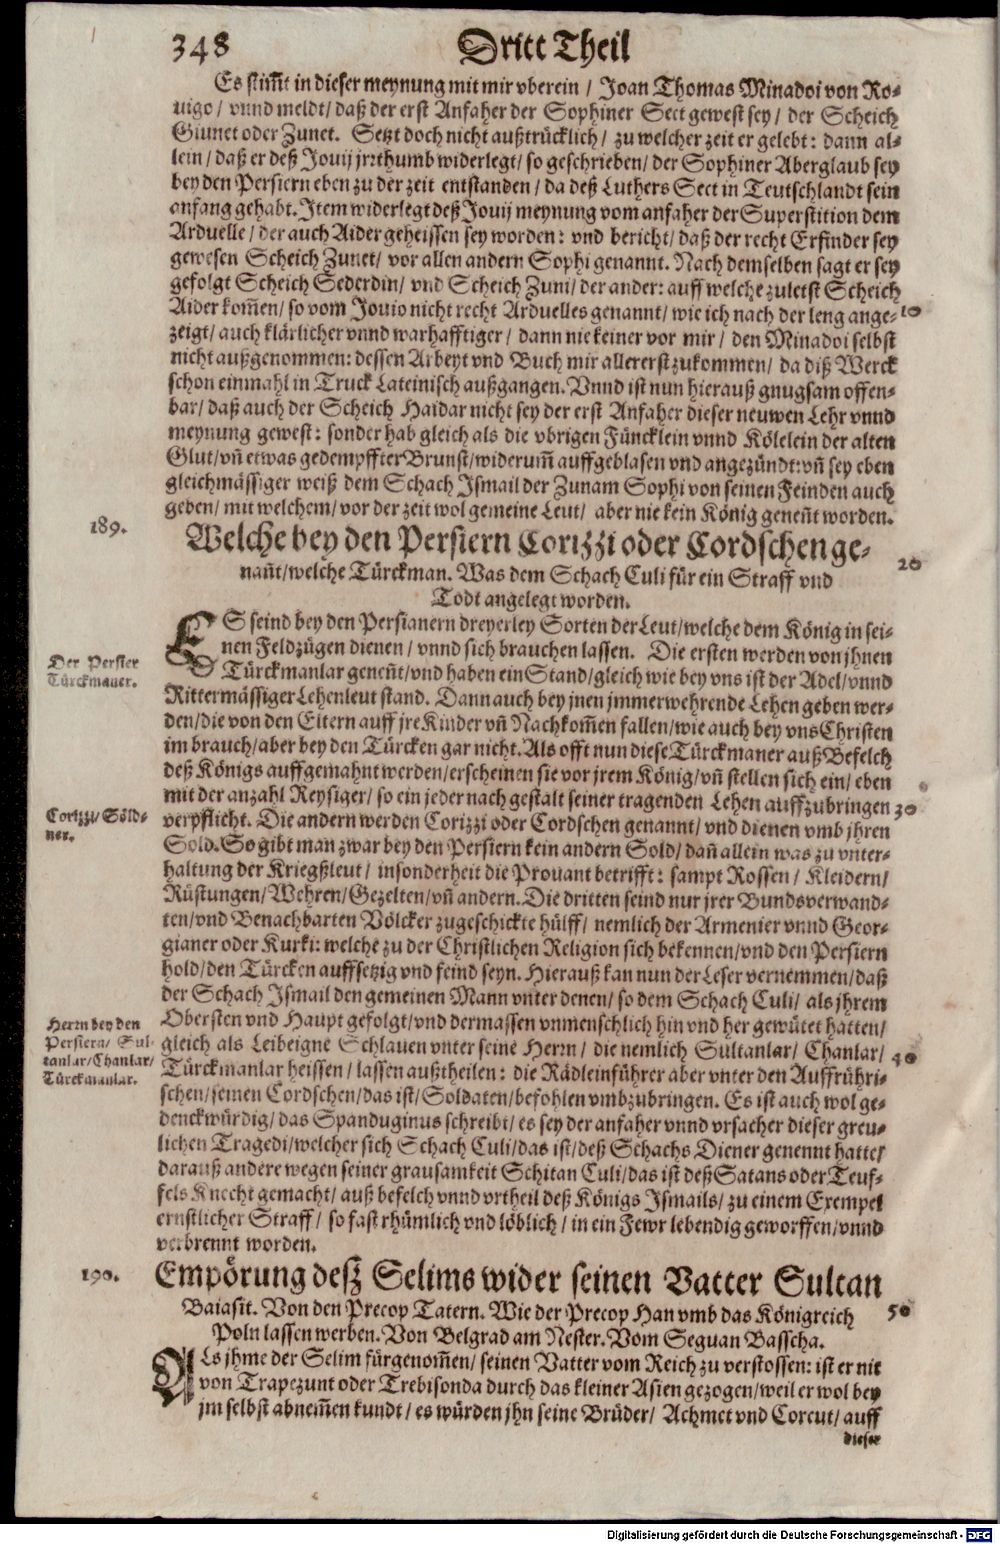 348 Dritt Theil
Es stim̃t in dieser meynung mit mir vberein / Joan Thomas Minadoi von Ro-
uigo / vnnd meldt / daß der erst Anfaher der Sophiner Sect gewest sey / der Scheich
Giunet oder Zunet. Setzt doch nicht außtrücklich / zu welcher zeit er gelebt: dann al-
lein / daß er deß Jouij jrrthumb widerlegt / so geschrieben / der Sophiner Aberglaub sey
bey den Persiern eben zu der zeit entstanden / da deß Luthers Sect in Teutschlandt sein
anfang gehabt. Item widerlegt deß Jouij meynung vom anfaher der Superstition dem
Arduelle / der auch Aider geheissen sey worden: vnd bericht / daß der recht Erfinder sey
gewesen Scheich Zunet / vor allen andern Sophi genannt. Nach demselben sagt er sey
gefolgt Scheich Sederdin / vnd Scheich Zuni / der ander: auff welche zuletst Scheich
Aider kom̃en / so vom Jouio nicht recht Arduelles genannt / wie ich nach der leng ange- 10
zeigt / auch klärlicher vnnd warhafftiger / dann nie keiner vor mir / den Minadoi selbst
nicht außgenommen: dessen Arbeyt vnd Buch mir allererst zukommen / da diß Werck
schon einmahl in Truck Lateinisch außgangen. Vnnd ist nun hierauß gnugsam offen-
bar / daß auch der Scheich Haidar nicht sey der erst Anfaher dieser neuwen Lehr vnnd
meynung gewest: sonder hab gleich als die vbrigen Füncklein vnnd Kölelein der alten
Glut / vñ etwas gedempffter Brunst / widerum̃ auffgeblasen vnd angezündt: vñ sey eben
gleichmässiger weiß dem Schach Ismail der Zunam Sophi von seinen Feinden auch
geben / mit welchem / vor der zeit wol gemeine Leut / aber nie kein König geneñt worden.
189. Welche bey den Persiern Corizzi oder Cordschen ge-
nañt / welche Türckman. Was dem Schach Culi für ein Straff vnd 20
Todt angelegt worden.
ES seind bey den Persianern dreyerley Sorten der Leut / welche dem König in sei-
nen Feldzügen dienen / vnnd sich brauchen lassen. Die ersten werden von jhnen
Der Persier
Türckmaner.
Türckmanlar geneñt / vnd haben ein Stand / gleich wie bey vns ist der Adel / vnnd
Rittermässiger Lehenleut stand. Dann auch bey jnen jmmerwehrende Lehen geben wer-
den / die von den Eltern auff jre Kinder vñ Nachkom̃en fallen / wie auch bey vns Christen
im brauch / aber bey den Türcken gar nicht. Als offt nun diese Türckmaner auß Befelch
deß Königs auffgemahnt werden / erscheinen sie vor jrem König / vñ stellen sich ein / eben
mit der anzahl Reysiger / so ein jeder nach gestalt seiner tragenden Lehen auffzubringen 30
Corizzi / Söld-
ner.
verpflicht. Die andern werden Corizzi oder Cordschen genannt / vnd dienen vmb jhren
Sold. So gibt man zwar bey den Persiern kein andern Sold / dañ allein was zu vnter-
haltung der Kriegßleut / insonderheit die Prouant betrifft: sampt Rossen / Kleidern /
Rüstungen / Wehren / Gezelten / vñ andern. Die dritten seind nur jrer Bundsverwand-
ten / vnd Benachbarten Völcker zugeschickte hülff / nemlich der Armenier vnnd Geor-
gianer oder Kurki: welche zu der Christlichen Religion sich bekennen / vnd den Persiern
hold / den Türcken auffsetzig vnd feind seyn. Hierauß kan nun der Leser vernemmen / daß
der Schach Ismail den gemeinen Mann vnter denen / so dem Schach Culi / als jhrem
Obersten vnd Haupt gefolgt / vnd dermassen vnmenschlich hin vnd her gewütet hatten /
Herrn bey den
Persiern / Sul-
tanlar / Chanlar /
Türckmanlar.
gleich als Leibeigne Schlauen vnter seine Herrn / die nemlich Sultanlar / Chanlar / 40
Türckmanlar heissen / lassen außtheilen: die Rädleinführer aber vnter den Auffrühri-
schen / seinen Cordschen / das ist / Soldaten / befohlen vmbzubringen. Es ist auch wol ge-
denckwürdig / das Spanduginus schreibt / es sey der anfaher vnnd vrsacher dieser greu-
lichen Tragedi / welcher sich Schach Culi / das ist / deß Schachs Diener genennt hatte /
darauß andere wegen seiner grausamkeit Schitan Culi / das ist deß Satans oder Teuf-
fels Knecht gemacht / auß befelch vnnd vrtheil deß Königs Ismails / zu einem Exempel
ernstlicher Straff / so fast rhümlich vnd löblich / in ein Fewr lebendig geworffen / vnnd
verbrennt worden.
190. Empörung desz Selims wider seinen Vatter Sultan
Baiasit. Von den Precop Tatern. Wie der Precop Han vmb das Königreich 50
Poln lassen werben. Von Belgrad am Nester. Vom Seguan Bascha.
ALs jhme der Selim fürgenom̃en / seinen Vatter vom Reich zu verstossen: ist er nit
von Trapezunt oder Trebisonda durch das kleiner Asien gezogen / weil er wol bey
jm selbst abnem̃en kundt / es würden jhn seine Brüder / Achmet vnd Corcut / auff
dieser
Digitalisierung gefördert durch die Deutsche Forschungsgemeinschaft - DFG